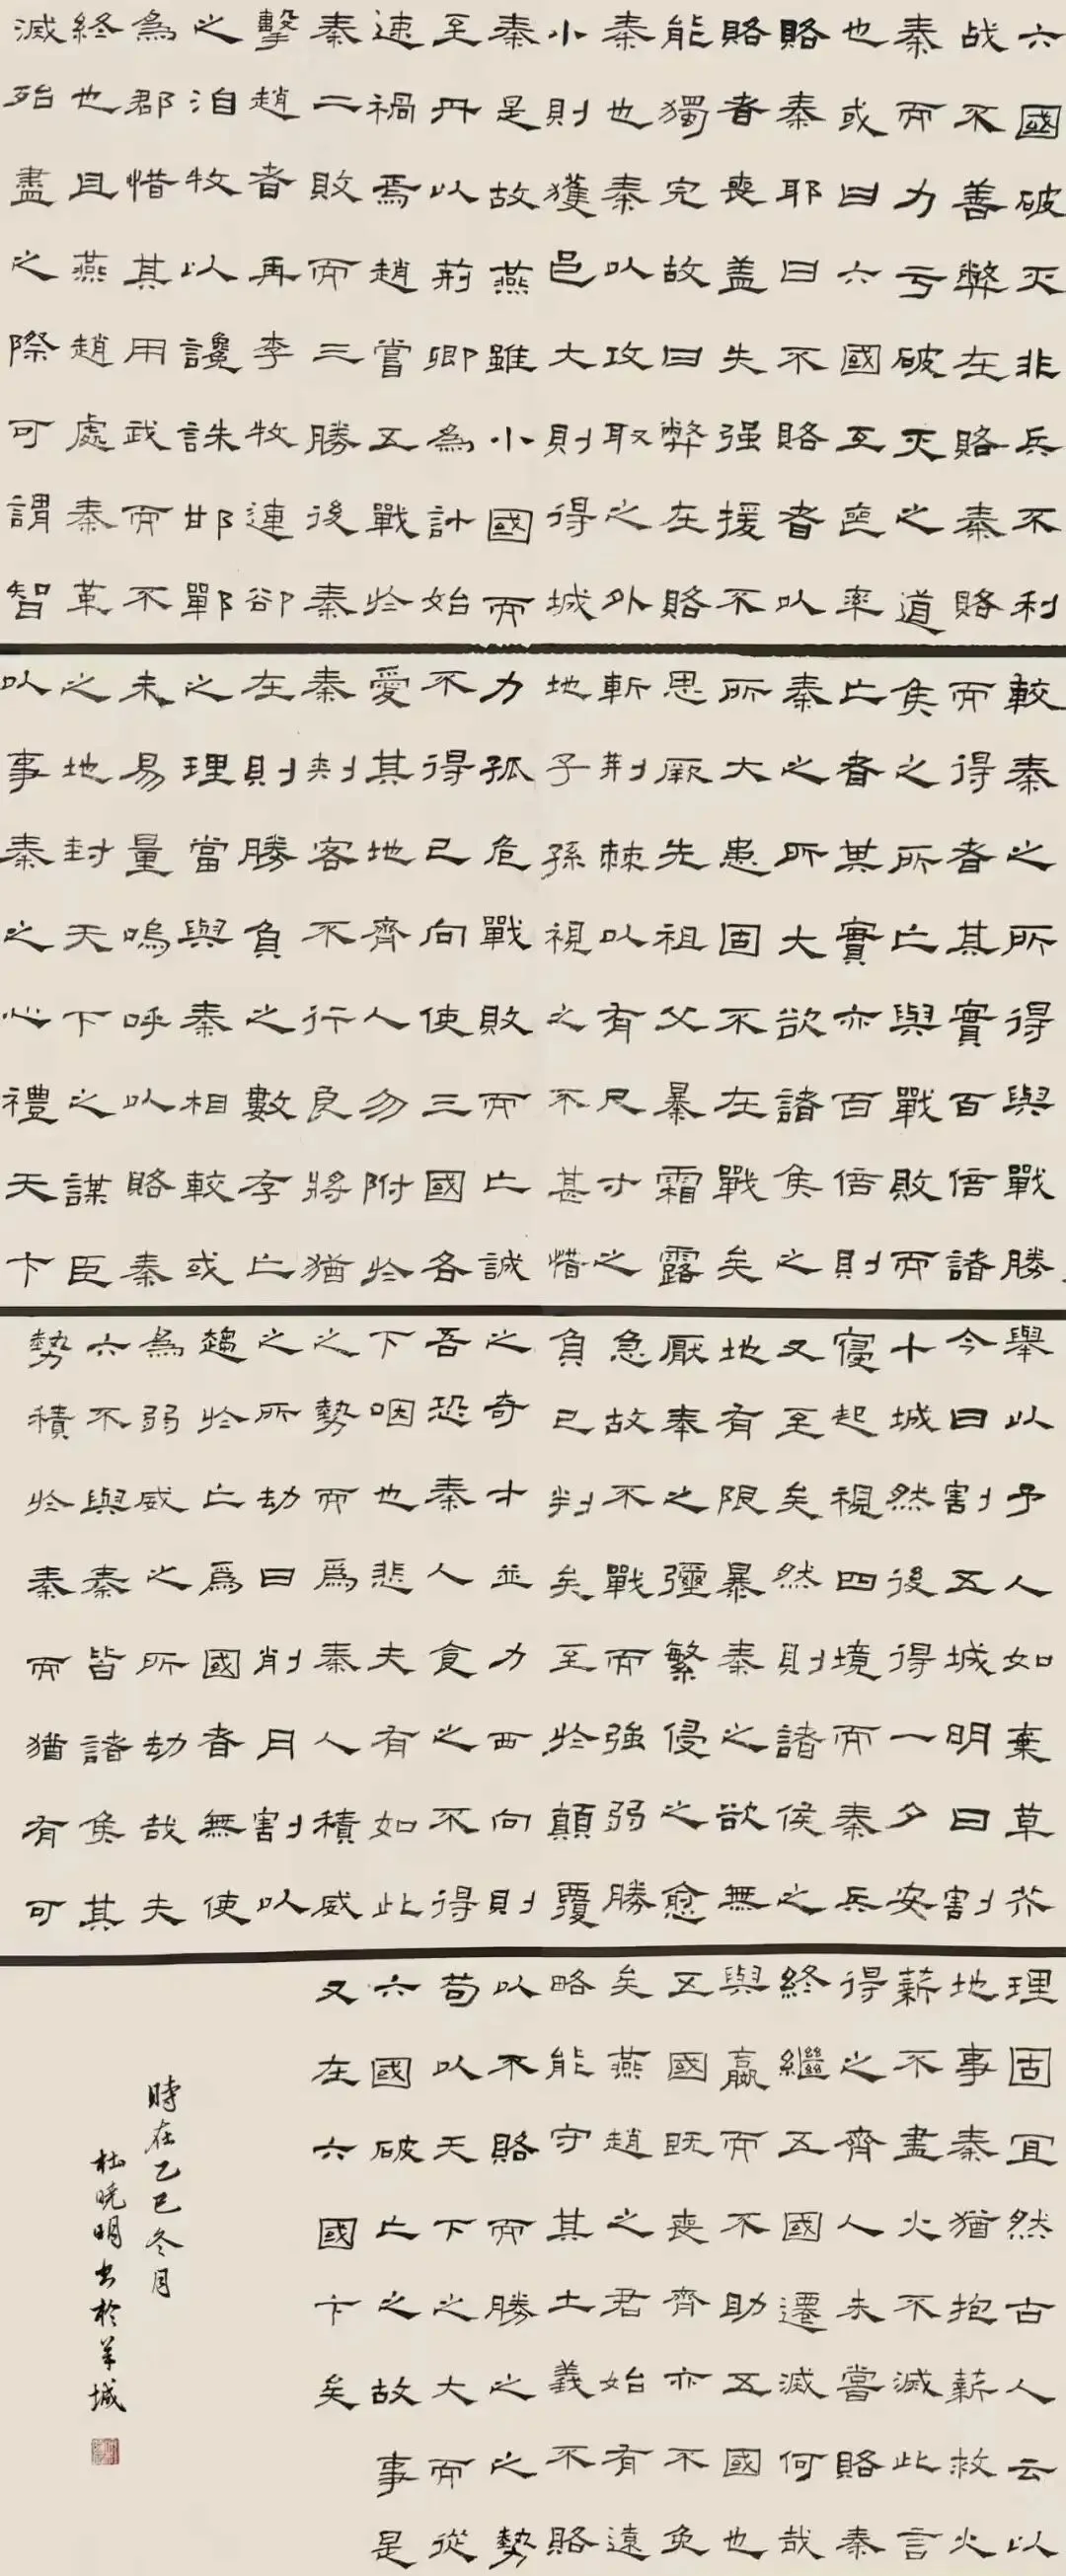 六國破灭非兵不利
战不善弊在賂秦賂
秦而力亏破灭之道
也或曰六國互喪率
賂秦耶曰不賂者以
賂者喪盖失强援不
能獨完故曰弊在賂
秦也秦以攻取之外
小則獲邑大則得城
秦是故燕雖小國而
至丹以荊卿為計始
速禍焉趙嘗五戰於
秦二敗而三勝後秦
擊趙者再李牧連卻
之洎牧以讒誅邯鄲
為郡惜其用武而不
終也且燕趙處秦革
滅殆盡之際可謂智
較秦之所得與戰勝
而得者其實百倍諸
侯之所亡與戰敗而
亡者其實亦百倍則
秦之所大欲諸侯之
所大患固不在戰矣
思厥先祖父暴霜露
斬荆棘以有尺寸之
地子孫視之不甚惜
力孤危戰敗而亡誠
不得已向使三國各
愛其地齊人勿附於
秦刺客不行良將猶
在則勝負之數存亡
之理當與秦相較或
未易量嗚呼以賂秦
之地封天下之謀臣
以事秦之心禮天下
舉以予人如棄草芥
今日割五城明日割
十城然後得一夕安
寢起視四境而秦兵
又至矣然則諸侯之
地有限暴秦之欲無
厭奉之彌繁侵之愈
急故不戰而強弱勝
負已判矣至於顛覆
之奇才並力西向則
吾恐秦人食之不得
下咽也悲夫有如此
之勢而爲秦人積威
之所劫日削月割以
趨於亡為國者無使
為弱威之所劫哉夫
六不與秦皆諸侯其
勢積於秦而猶有可
理固宜然古人云以
地事秦猶抱薪救火
薪不盡火不滅此言
得之齊人未嘗賂秦
終繼五國遷滅何哉
與嬴而不助五國也
五國既喪齊亦不免
矣燕趙之君始有遠
略能守其土義不賂
以不賂而勝之之勢
苟以天下之大而從
六國破亡之故事是
又在六國下矣
時在乙巳冬月
杜曉明書於羊城